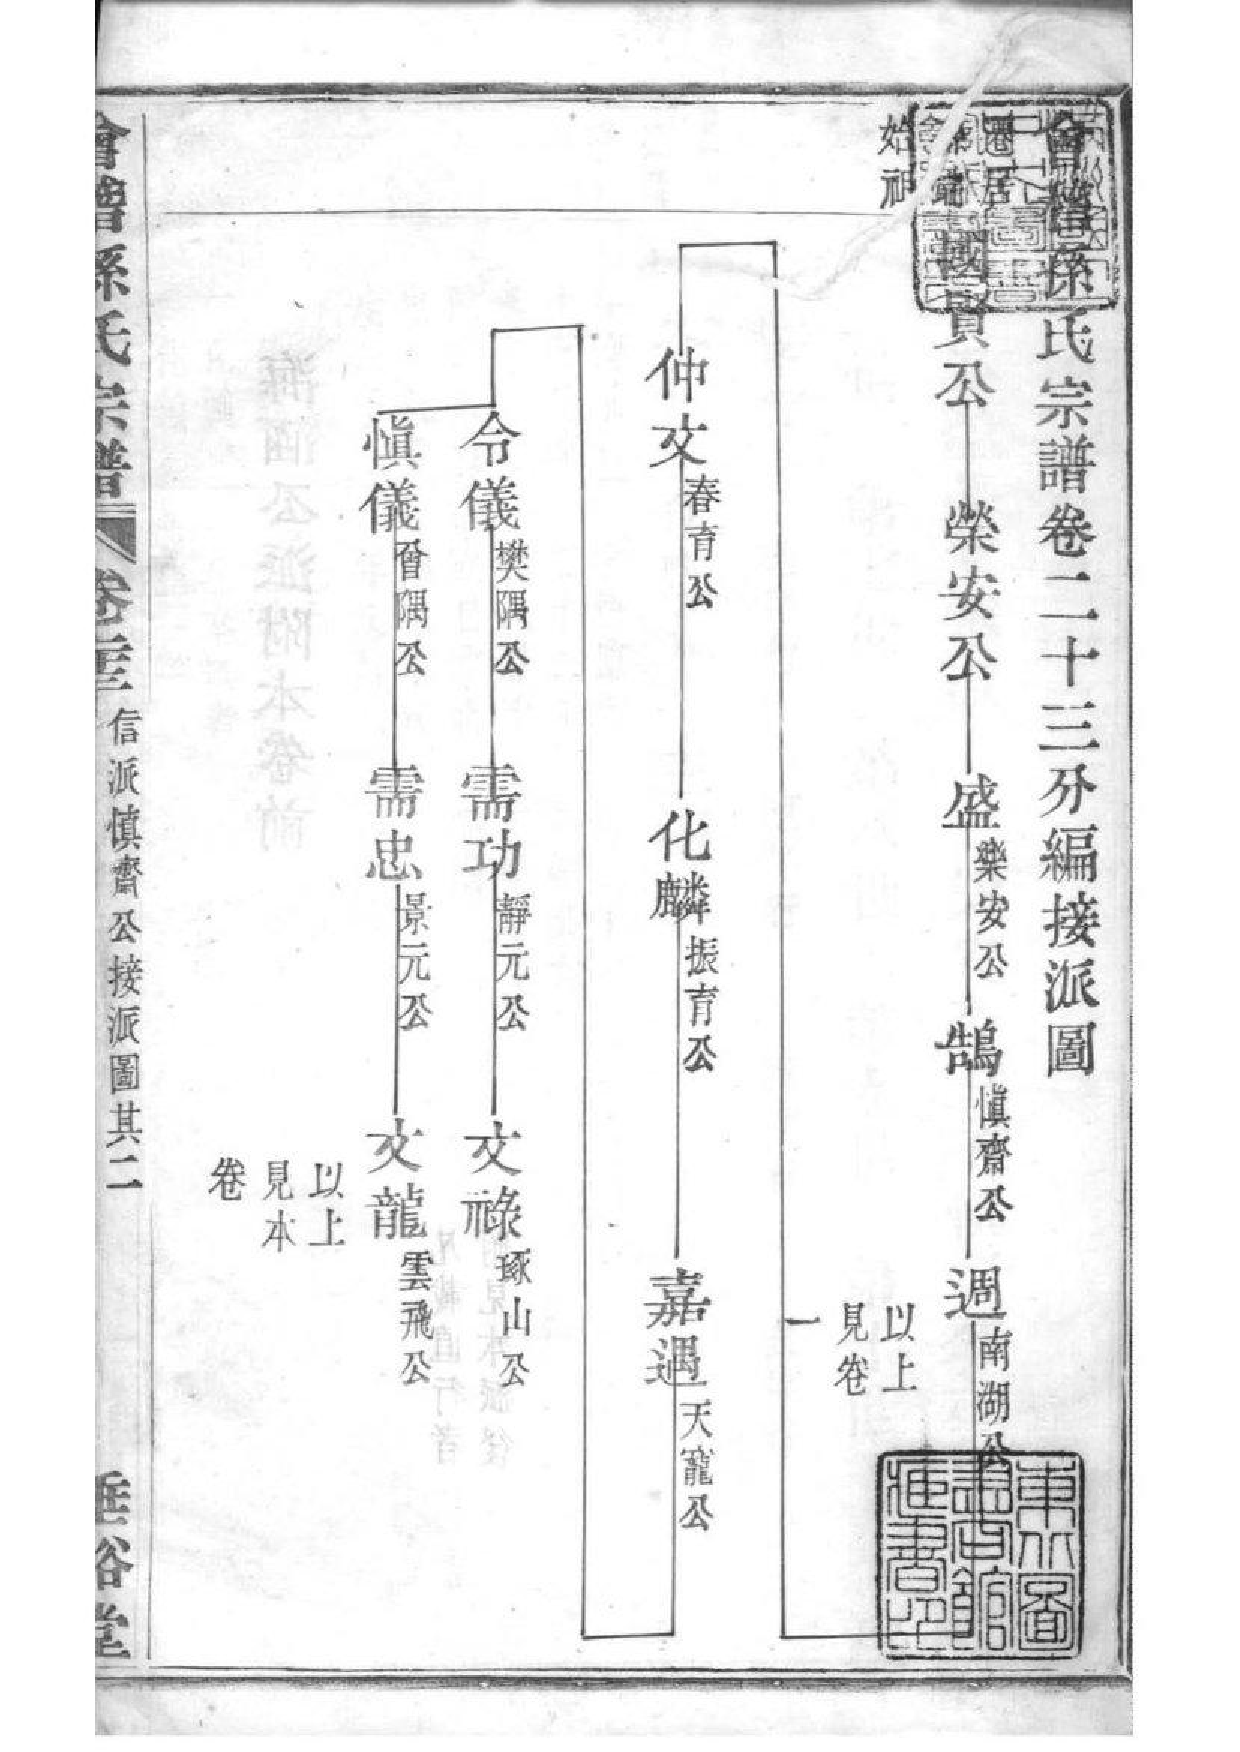 會稽孫氏宗譜卷二十三分編接派圖
遷居
始祖
國賢公
榮安公
盛 樂安公
鵠 慎齋公
週 南湖公
以上
見卷
一
仲文 春育公
化麟 振育公
嘉遇 天寵公
令儀 樊隅公
需功 靜元公
文祿 琢山公
慎儀 晉隅公
需忠 景元公
文龍 雲飛公
以上
見本
卷
會稽孫氏宗譜
卷二十三
信派慎齋公接派圖其二
垂裕堂